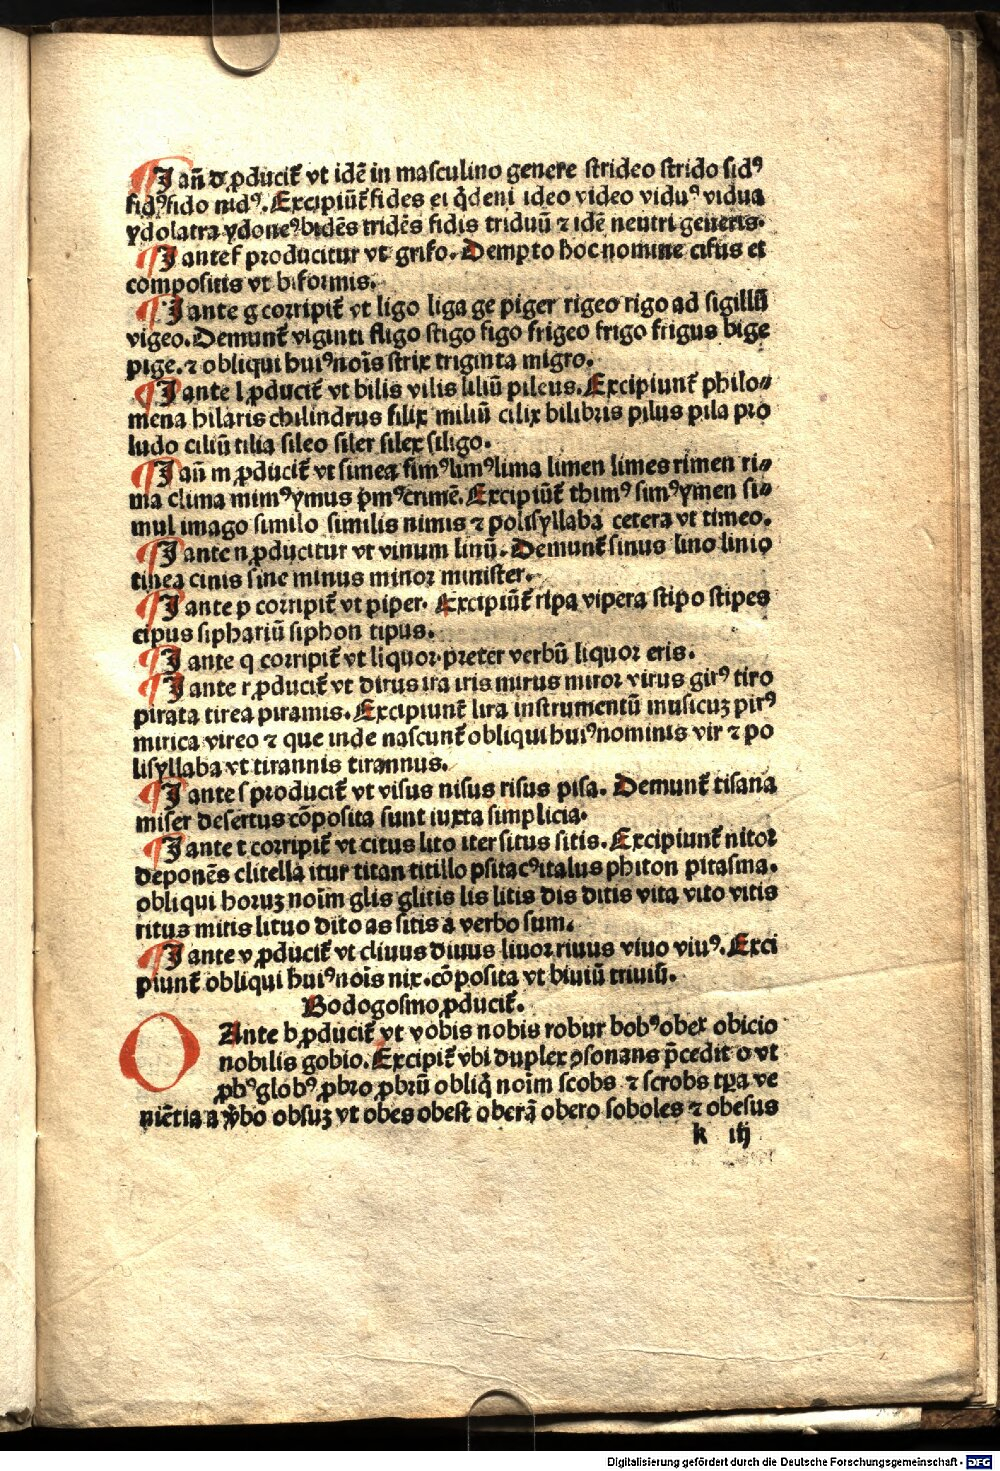 ¶ I an̄ d ꝓducit᷑ vt idē in masculino genere strideo strido sidꝰ
fidꝰ fido nidꝰ. Excipiūt᷑ fides ei q̄deni ideo video viduꝰ vidua
ydolatra ydoneꝰ bidēs tridēs fidis triduū ⁊ idē neutri generis.
¶ I ante f producitur vt grifo. Dempto hoc nomine cifus et
compositis vt biformis.
¶ I ante g corripit᷑ vt ligo liga ge piger rigeo rigo ad sigillū
vigeo. Demunt᷑ viginti fligo stigo figo frigeo frigo frigus bige
pige. ⁊ obliqui huiꝰ noīs strix triginta migro.
¶ I ante l ꝓducit᷑ vt bilis vilis liliū pileus. Excipiunt᷑ philo⸗
mena hilaris chilindrus filix miliū cilix bilibris pilus pila pro
ludo ciliū tilia sileo siler silex siligo.
¶ I an̄ m ꝓducit᷑ vt simea simꝰ limꝰ lima limen limes rimen ri⸗
ma clima mimꝰ ymus p̄mꝰ crimē. Excipiūt᷑ thimꝰ simꝰ ymen si⸗
mul imago similo similis nimis ⁊ polisyllaba cetera vt timeo.
¶ I ante n ꝓducitur vt vinum linū. Demunt᷑ sinus lino linio
tinea cinis sine minus minor minister.
¶ I ante p corripit᷑ vt piper. Excipiūt᷑ ripa vipera stipo stipes
cipus siphariū siphon tipus.
¶ I ante q corripit᷑ vt liquor preter verbū liquor eris.
¶ I ante r ꝓducit᷑ vt dirus ira iris mirus miror virus girꝰ tiro
pirata tirea piramis. Excipiunt᷑ lira instrumentū musicuꝫ pirꝰ
mirica vireo ⁊ que inde nascunt᷑ obliqui huiꝰ nominis vir ⁊ po
lisyllaba vt tirannis tirannus.
¶ I ante s producit᷑ vt visus nisus risus pisa. Demunt᷑ tisana
miser desertus cōposita sunt iuxta simplicia.
¶ I ante t corripit᷑ vt citus lito iter situs sitis. Excipiunt᷑ nitor
deponēs clitella itur titan titillo psitacꝰ italus phiton pitasma.
obliqui horuꝫ noīm glis glitis lis litis dis ditis vita vito vitis
ritus mitis lituo dito as sitis a verbo sum.
¶ I ante v ꝓducit᷑ vt cliuus diuus liuor riuus viuo viuꝰ. Exci
piunt᷑ obliqui huiꝰ noīs nix. cōposita vt biuiū triuiū.
Bodogosmo ꝓducit᷑.
O Ante b ꝓducit᷑ vt vobis nobis robur bobꝰ obex obicio
nobilis gobio. Excipit᷑ vbi duplex ꝯsonans p̄cedit o vt
ꝓbꝰ globꝰ ꝓbro ꝓbrū obliq̄ noīm scobs ⁊ scrobs tp̄a ve
niētia a v̄bo obsuꝫ vt obes obest oberā obero soboles ⁊ obesus
k iij
Digitalisierung gefördert durch die Deutsche Forschungsgemeinschaft - DFG